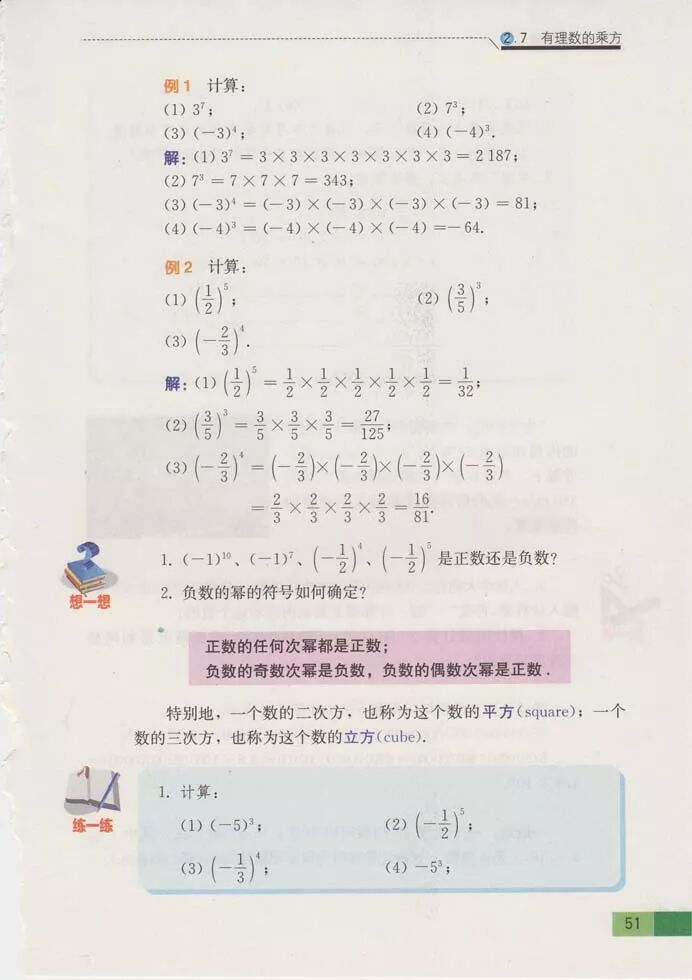 2.7 有理数的乘方
例1 计算：
(1) 3⁷； (2) 7³；
(3) (－3)⁴； (4) (－4)³．
解：(1) 3⁷ = 3×3×3×3×3×3×3 = 2 187；
(2) 7³ = 7×7×7 = 343；
(3) (－3)⁴ = (－3)×(－3)×(－3)×(－3) = 81；
(4) (－4)³ = (－4)×(－4)×(－4) =－64.
例2 计算：
(1) (1/2)⁵； (2) (3/5)³；
(3) (－2/3)⁴．
解：(1) (1/2)⁵ = 1/2×1/2×1/2×1/2×1/2 = 1/32；
(2) (3/5)³ = 3/5×3/5×3/5 = 27/125；
(3) (－2/3)⁴ = (－2/3)×(－2/3)×(－2/3)×(－2/3)
= 2/3×2/3×2/3×2/3 = 16/81.
想一想
1. (－1)¹⁰、(－1)⁷、(－1/2)⁴、(－1/2)⁵ 是正数还是负数？
2. 负数的幂的符号如何确定？
正数的任何次幂都是正数；
负数的奇数次幂是负数，负数的偶数次幂是正数．
特别地，一个数的二次方，也称为这个数的平方(square)；一个
数的三次方，也称为这个数的立方(cube).
练一练
1. 计算：
(1) (－5)³； (2) (－1/2)⁵；
(3) (－1/3)⁴； (4) －5³；
51